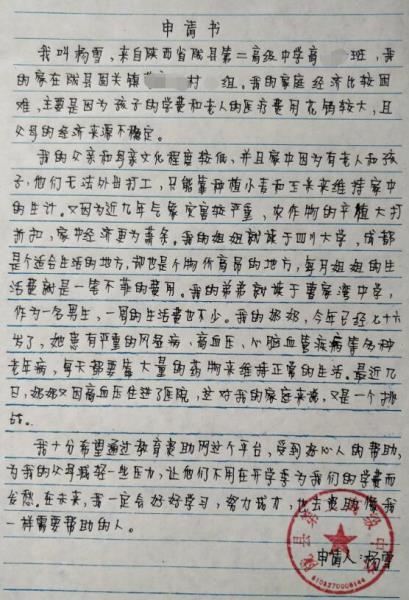 申请书
我叫杨雪,来自陕西省陇县第二高级中学高 班,我
的家在陇县固关镇 村 组。我的家庭经济比较困
难,主要是因为孩子的学费和老人的医疗费用花销较大,且
父母的经济来源不稳定。
我的父亲和母亲文化程度较低,并且家中因为有老人和孩
子,他们无法外出打工,只能靠种植小麦和玉米来维持家中
的生计。又因为近几年气象灾害较严重,农作物的产值大打
折扣,家中经济更为萧条。我的姐姐就读于四川大学,成都
是个适合生活的地方,却也是个物价高昂的地方,每月姐姐的生
活费就是一笔不菲的费用。我的弟弟就读于曹家湾中学,
作为一名男生,一周的生活费也不少。我的奶奶,今年已经七十六
岁了,她患有严重的风湿病、高血压、心脑血管疾病等多种
老年病,每天都要靠大量的药物来维持正常的生活。最近几
日,奶奶又因高血压住进了医院,这对我的家庭来说,又是一个挑
战。
我十分希望通过教育资助网这个平台,受到好心人的帮助,
为我的父母减轻一些压力,让他们不用在开学季为我们的学费而
发愁。在未来,我一定会好好学习,努力成才,也去资助像我
一样需要帮助的人。
申请人:杨雪